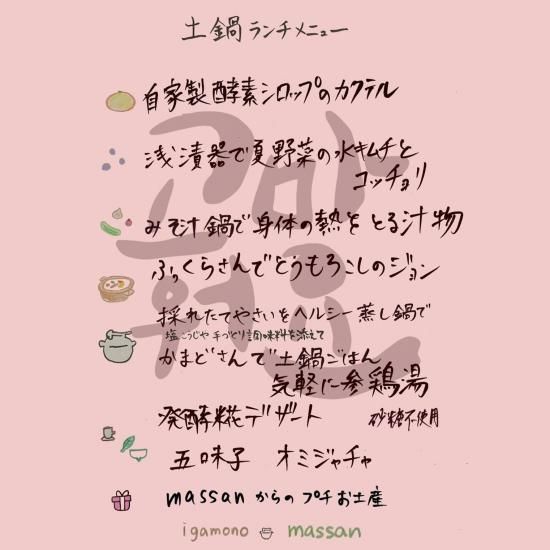 土鍋ランチメニュー
自家製酵素シロップのカクテル
浅漬器で夏野菜の水キムチと
コッチョリ
みそ汁鍋で身体の熱をとる汁物
ふっくらさんでとうもろこしのジョン
採れたてやさいをヘルシー蒸し鍋で
塩こうじや手づくり調味料を添えて
かまどさんで土鍋ごはん
気軽に参鶏湯
発酵糀デザート 砂糖不使用
五味子 オミジャチャ
massanからのプチお土産
igamono massan